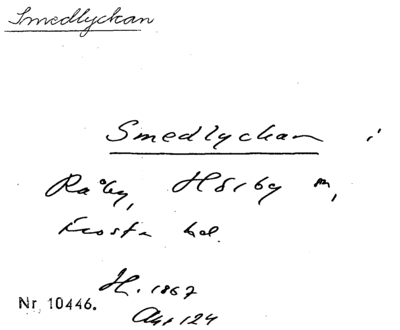 Smedlyckan
Smedlyckan i
Råby, Hörby m,
Frosta hd.
H. 1867
Nr. 10446.
124